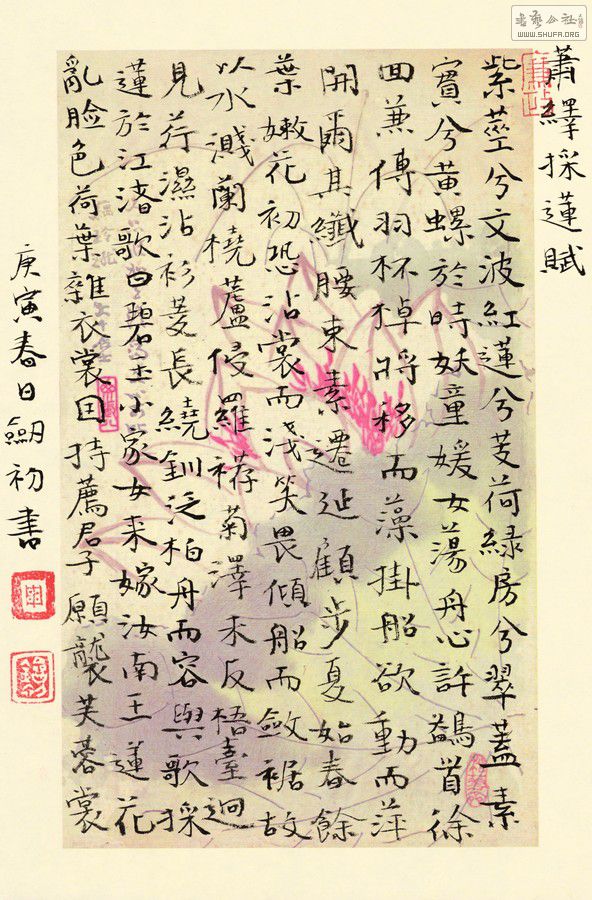 蕭繹採蓮賦
紫莖兮文波紅蓮兮芰荷綠房兮翠蓋素
實兮黃螺於時妖童媛女蕩舟心許鷁首徐
回兼傳羽杯棹將移而藻掛船欲動而萍
開爾其纖腰束素遷延顧步夏始春餘
葉嫩花初恐沾裳而淺笑畏傾船而斂裾故
以水濺蘭橈蘆侵羅袸菊澤未反梧臺迥
見荇濕沾衫菱長繞釧泛柏舟而容與歌採
蓮於江渚歌曰碧玉小家女來嫁汝南王蓮花
亂臉色荷葉雜衣裳因持薦君子願襲芙蓉裳
庚寅春日劒初書
書藝公社
WWW.SHUFA.ORG